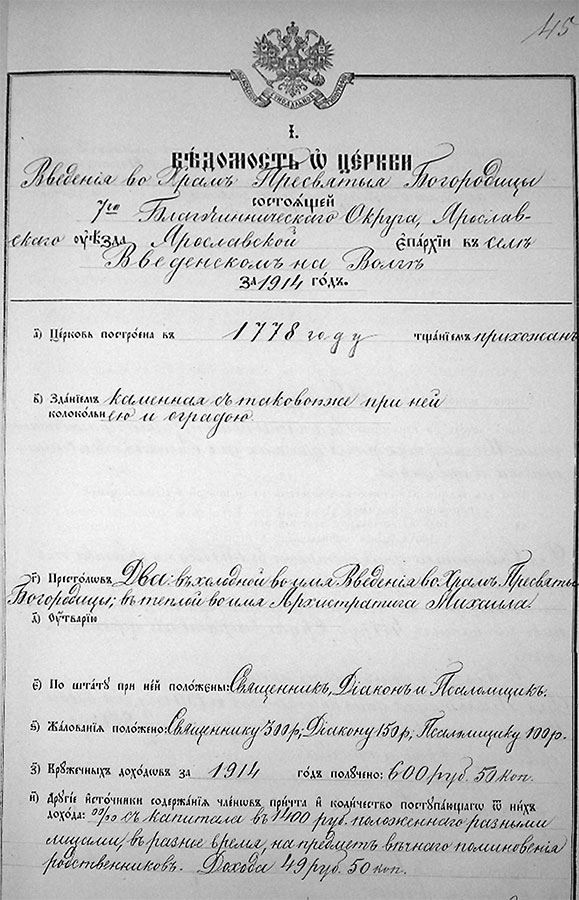 45
І.
ВѢДОМОСТЬ Ѿ ЦЕРКВИ
Введенія во Храмъ Пресвятыя Богородицы
СОСТОЯЩЕЙ
7го Благочинническаго Округа, Ярослав-
скаго ОУѢЗДА Ярославской ЄПАРХІИ ВЪ селѣ
Введенскомъ на Волгѣ
ЗА 1914 ГОДЪ.
а҃) Церковь построена въ 1778 году тщаніемъ прихожанъ
в҃) Зданіемъ каменная съ таковою же при ней
колокольнею и оградою
г҃) Престоловъ Два: въ холодной во имя Введенія во Храмъ Пресвятыя
Богородицы; въ теплой во имя Архистратига Михаила.
д҃) Оутварію
є҃) По штату при ней положены: Священникъ, Діаконъ и Псаломщикъ.
ѕ҃) Жалованія положено: Священнику 300 р, Діакону 150 р, Псаломщику 100 р.
з҃) Кружечныхъ доходовъ за 1914 годъ получено: 600 руб. 50 коп.
и҃) Другіе источники содержанія членовъ причта и количество поступающаго ѿ нихъ
дохода: %% съ капитала въ 1400 руб. положеннаго разными
лицами, въ разное время, на предметъ вѣчнаго поминовенія
родственниковъ. Дохода 49 руб. 50 коп.